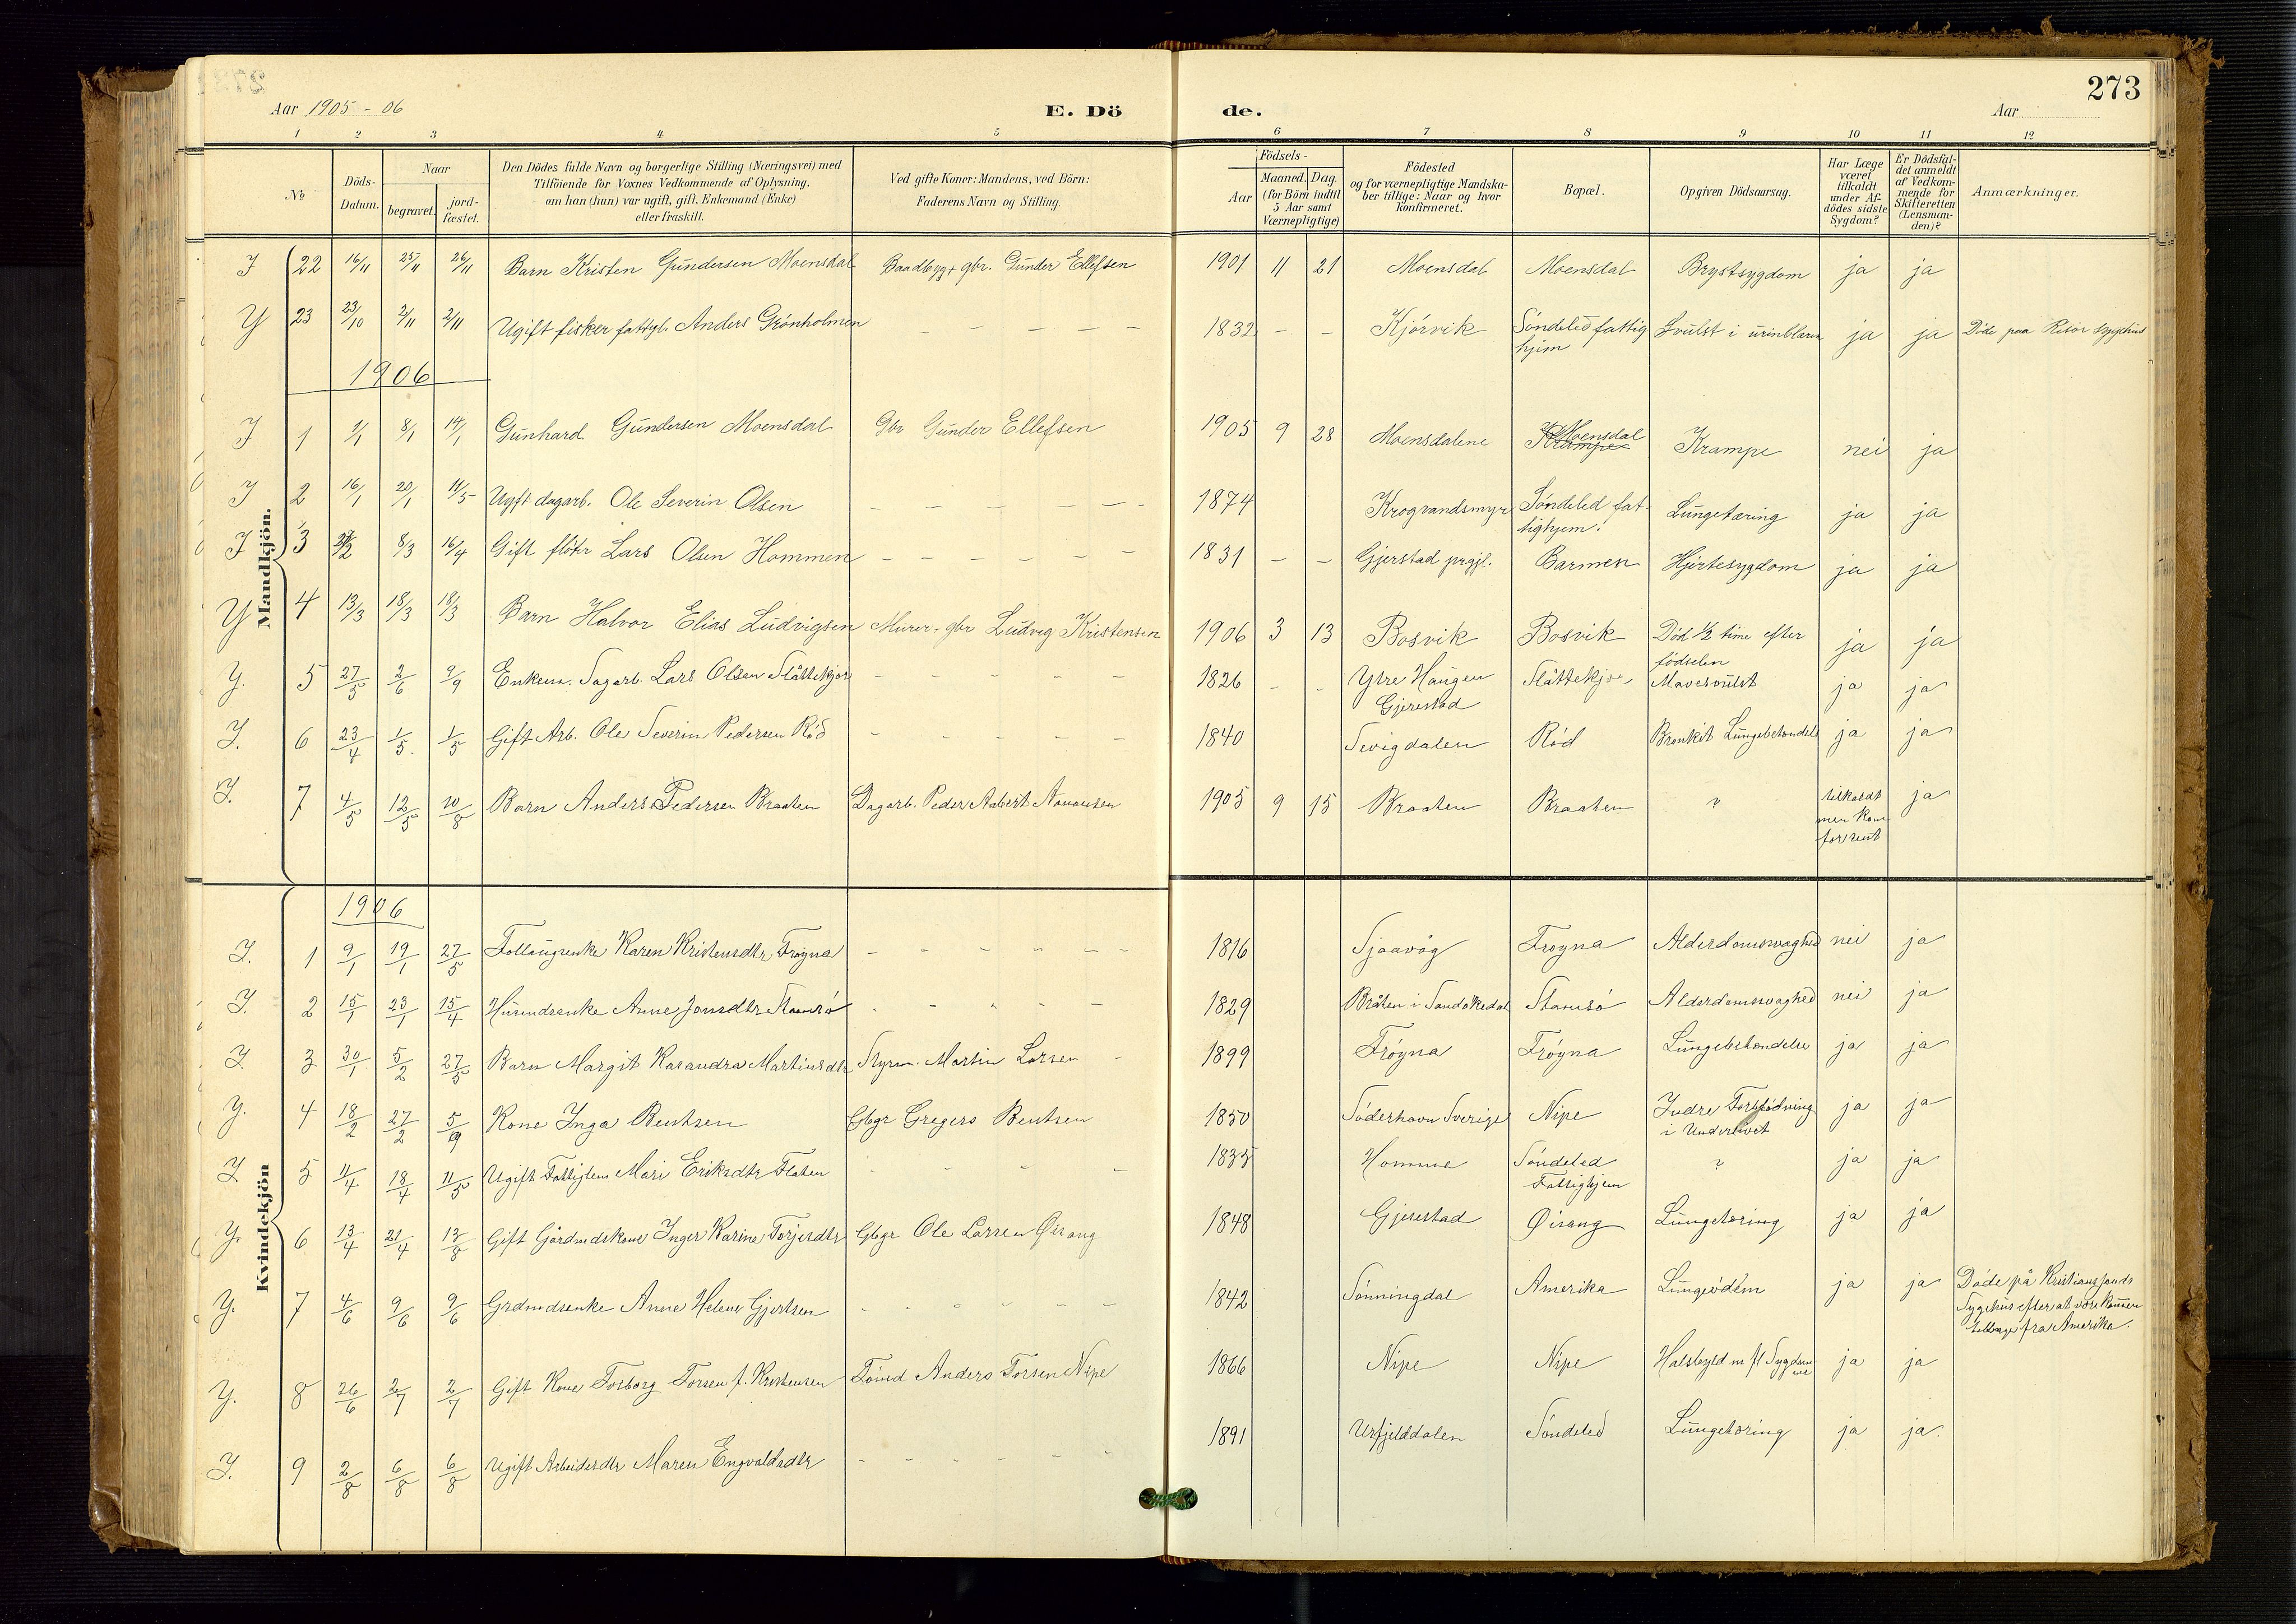 273
Aar 1905 - 06
E. Dö
de.
Aar
1 2 3 4 5 6 7 8 9 10 11 12
No
Döds-Datum.
Naar
begravet.
jord-fæstet.
Den Dödes fulde Navn og borgerlige Stilling (Næringsvei) med
Tilföiende for Voxnes Vedkommende af Oplysning,
om han (hun) var ugift, gift, Enkemand (Enke)
eller fraskilt.
Ved gifte Koner: Mandens, ved Börn:
Faderens Navn og Stilling.
Födsels-
Aar
Maaned. Dag.
(for Börn indtil
5 Aar samt
Værnepligtige)
Födested
og for værnepligtige Mandska-
ber tillige: Naar og hvor
konfirmeret.
Bopæl.
Opgiven Dödsaarsag.
Har Læge
været
tilkaldt
under Af-
dödes sidste
Sygdom?
Er Dödsfal-
det anmeldt
af Vedkom-
mende for
Skifteretten
(Lensman-
den)?
Anmærkninger.
Mandkjön.
I 22 16/11 25/11 26/11 Barn Kristen Gundersen Moensdal Baadbygr gbr. Gunder Ellefsen 1901 11 21 Moensdal Moensdal Brystsygdom ja ja
Y 23 23/10 2/11 2/11 Ugift fisker fattigl. Anders Grönholmen — — — — — 1832 — — Kjörvik Söndeled fattig hjem Svulst i urinblæren ja ja Döde paa Risör sygehus
1906
I 1 1/1 8/1 14/1 Gunhard Gundersen Moensdal Gbr Gunder Ellefsen 1905 9 28 Moensdalene Moensdal Krampe nei ja
I 2 16/1 20/1 11/5 Ugift dagarb. Ole Severin Olsen — — — — — 1874 Krogvandsmyr Söndeled fat-tighjem. Lungetæring ja ja
I 3 8/3 16/4 Gift Lars Olsen Hommen — — — — — 1831 — — Gjerstad prgjl. Barmen Hjertesygdom ja ja
Y 4 13/3 18/3 18/3 Barn Halvor Elias Ludvigsen Murer. gbr Ludvig Kristensen 1906 3 13 Bosvik Bosvik Död 1/2 time efter födselen ja ja
Y. 5 27/5 2/6 9/9 Enkem. Dagarb. Lars Olsen Slåttekjær — — — — — 1826 — — Ytre Haugen Gjerestad Slåttekjær Mavesvulst ja ja
I. 6 23/4 1/5 1/5 Gift Arb. Ole Severin Pedersen Röd — — — — — 1840 Sevigdalen Röd Bronkit Lungebetændelse ja ja
I. 7 4/5 12/5 10/8 Barn Anders Pedersen Braaten Dagarb. Peder Aabert Aanonsen 1905 9 15 Braaten Braaten ? tilkaldt men kom for sent ja
Kvindekjön
1906
I. 1 9/1 19/1 27/5 Karen Kristensdtr Fröyna — — — — — — 1816 Sjaavåg Fröyna Alderdomsvaghed nei ja
I. 2 15/1 23/1 15/4 Husmdsenke Anne Jonsdtr Stamsö - - - - - 1829 Bråten i Sandökedal Stamsö Alderdomssvaghed nei ja
I. 3 30/1 5/2 27/5 Barn Margit Kasandra Martinsdtr Styrm. Martin Larsen 1899 Fröyna Fröyna Lungebetændelse ja ja
Y. 4 18/2 27/2 5/9 Kone Inga Bentsen Gbgr Gregers Bentsen 1850 Söderhavn Sverige Nipe Indre Forblödning i Underlivet ja ja
I 5 11/4 18/4 11/5 Ugift Fattiglem Mari Eriksdtr Flaten - - - - 1835 Homme Söndeled Fattighjem ? ja ja
Y. 6 13/4 21/4 12/8 Gift Gårdmdskone Inger Karine Torjersdtr Gbgr Ole Larsen Øisang 1848 Gjerestad Øisang Lungetæring ja ja
Y. 7 4/6 9/6 9/6 Grdmdsenke Anne Helene Gjertsen - - - - - - 1842 Sönningdal Amerika Lungeödem ja ja Döde på Kristianssands Sygehus efter at være kommen tilbage fra Amerika.
Y. 8 26/6 2/7 2/7 Gift Kone Torborg Torsen f. Kristensen Tömd Anders Torsen Nipe 1866 Nipe Nipe Halsbyld m fl Sygdomme ja ja
I. 9 2/8 6/8 6/8 Ugift Arbeiderdtr Maren Engvoldsdtr - - - - - - 1891 Urfjelddalen Söndeled Lungetæring ja ja.